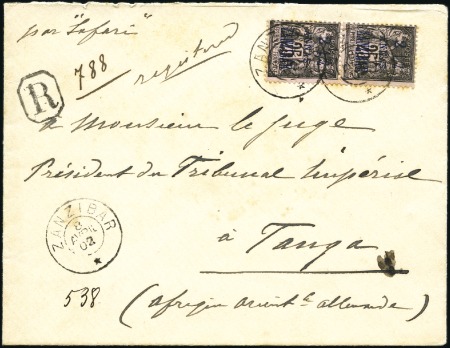 par "Safari"
R
788
registered
ZANZIBAR
à Monsieur le Juge
Président du Tribunal Impérial
ZANZIBAR
8
AVRIL
02
à Tanga
538
(Afrique Orient.le allemande)